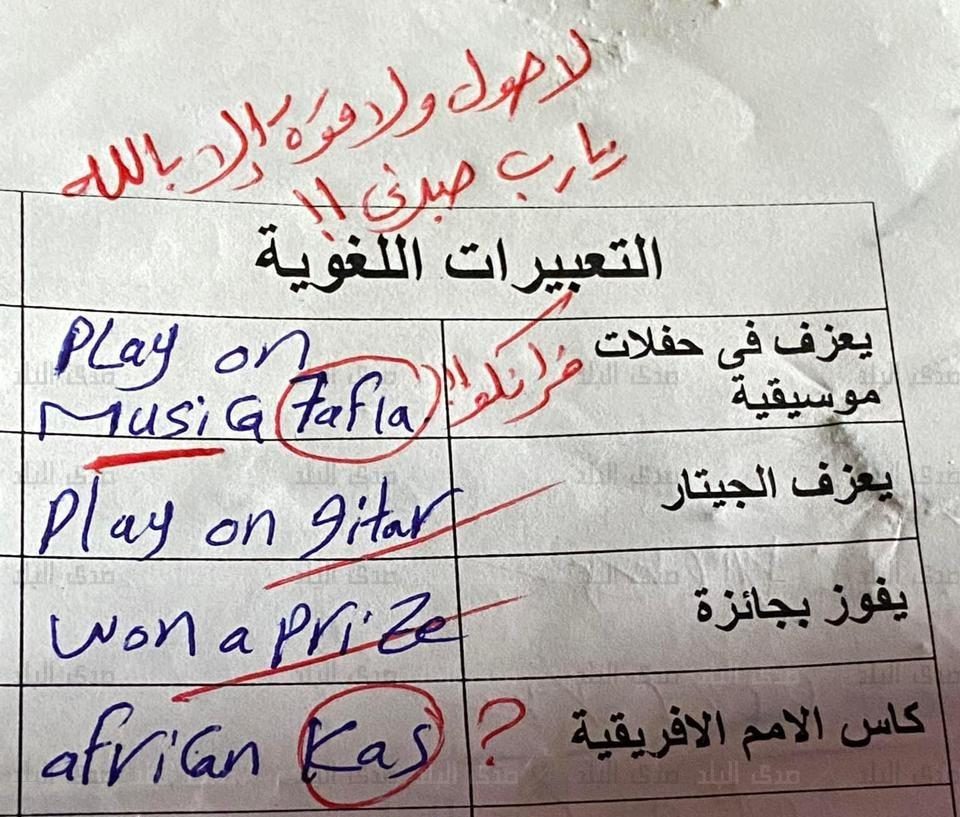 لا حول ولا قوة إلا بالله
يارب صبرنى !!
التعبيرات اللغوية
يعزف فى حفلات
موسيقية
فرانكو!!
Play on
Music 7afla
يعزف الجيتار
Play on gitar
يفوز بجائزة
won a prize
كاس الامم الافريقية
?
african Kas
صدى البلد